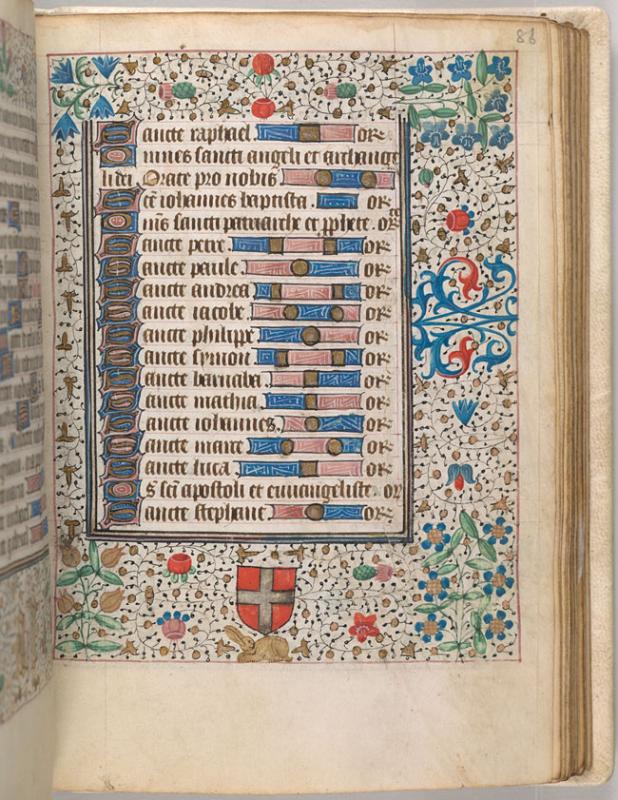 86
Sancte raphael or
Omnes sancti angeli et archange
li dei Orate pro nobis
Scē iohannes baptista. or
Om̄s sancti patriarche et pphete. or
Sancte petre or
Sancte paule or
Sancte andrea or
Sancte iacobe or
Sancte philippe or
Sancte symon or
Sancte barnaba. or
Sancte mathia. or
Sancte iohannes. or
Sancte marce or
Sancte luca. or
Os̄ scī apostoli et euuangeliste. or
Sancte stephane or